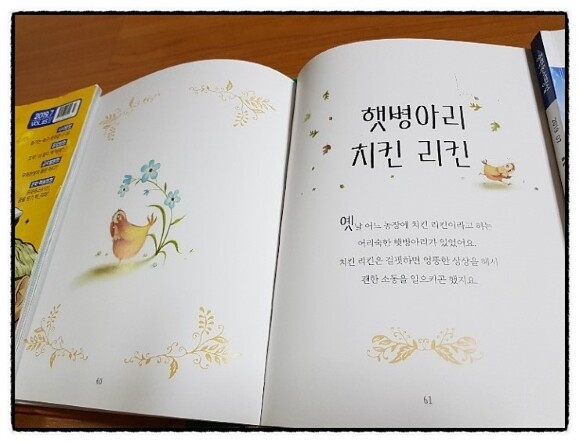 2019.7
햇병아리
치킨 리킨
옛날 어느 농장에 치킨 리킨이라고 하는
어리숙한 햇병아리가 있었어요.
치킨 리킨은 걸핏하면 엉뚱한 상상을 해서
괜한 소동을 일으키곤 했지요.
60
61